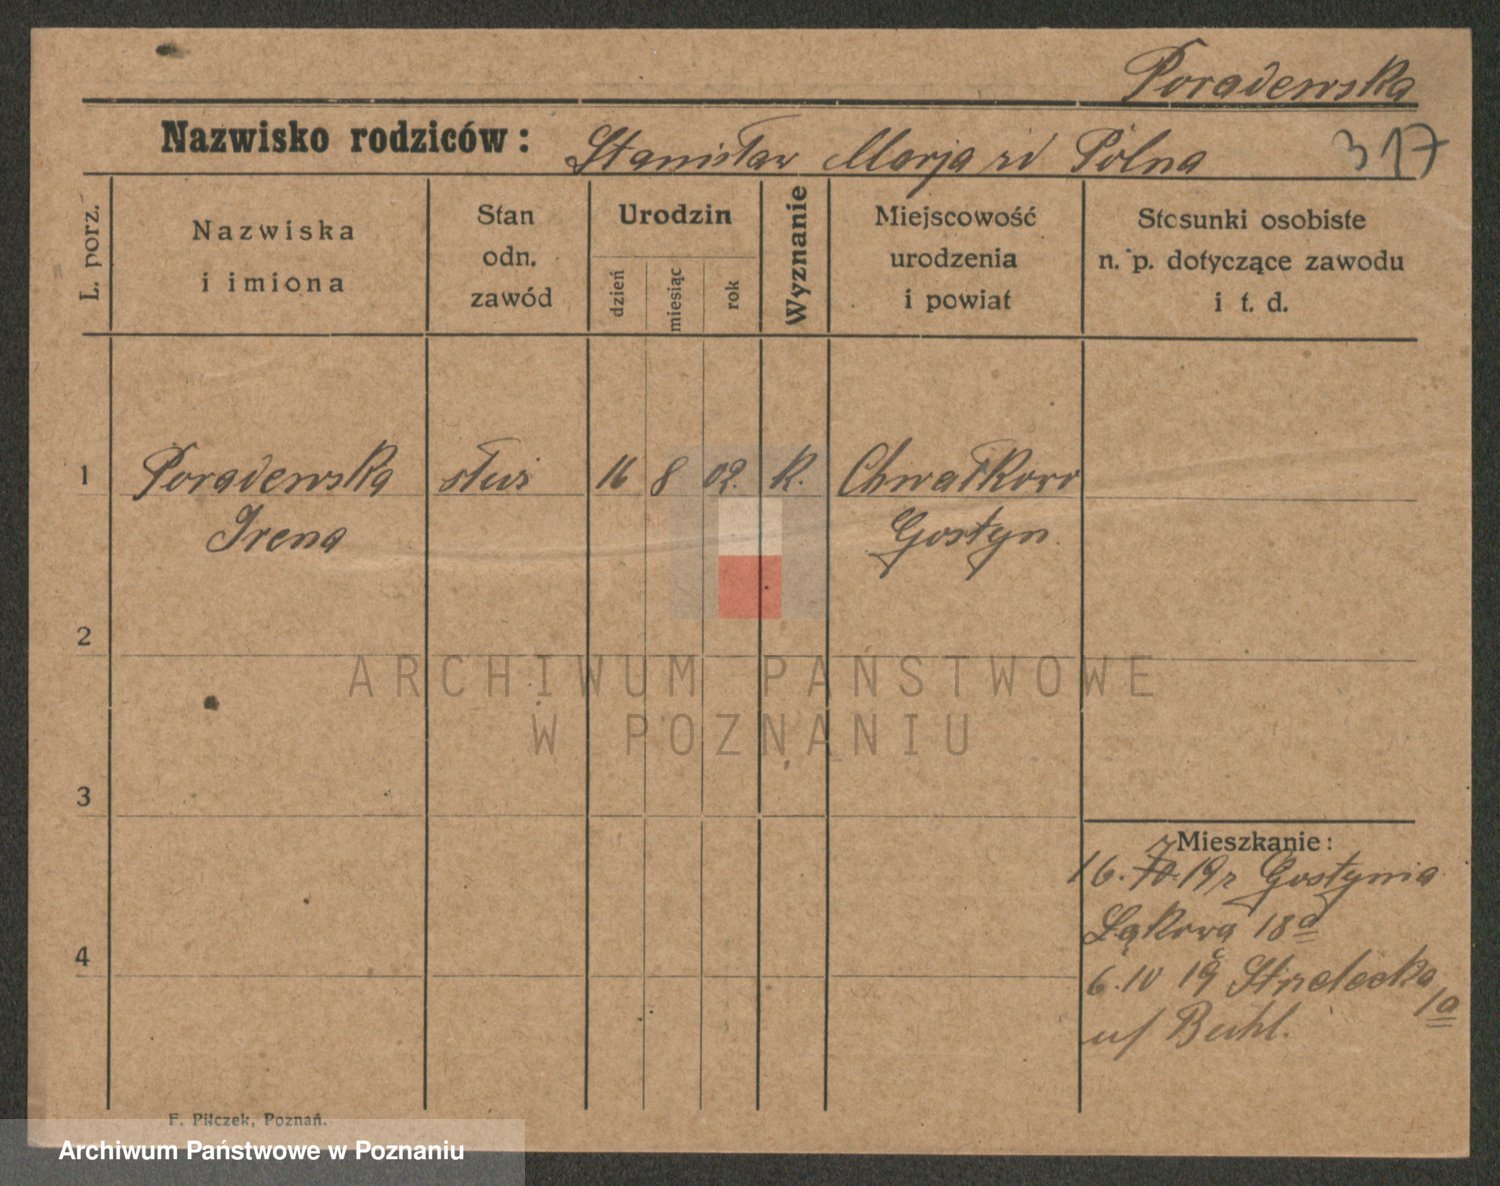 Poradewska
Nazwisko rodziców: Stanisław Marja zd Pólna 317
L. porz.
Nazwiska i imiona
Stan odn. zawód
Urodzin
dzień miesiąc rok
Wyznanie
Miejscowość urodzenia i powiat
Stosunki osobiste n. p. dotyczące zawodu i t. d.
1 Poradewska służ 16 8 02. K. Chwałkowo
Irena Gostyn.
2
3
4
Mieszkanie:
16. 19r Gostynia
Łąkowa 18a
6. IV 19 Strzelecka 1a
u/ Buhl.
F. Pilczek, Poznań.
ARCHIWUM PAŃSTWOWE
W POZNANIU
Archiwum Państwowe w Poznaniu